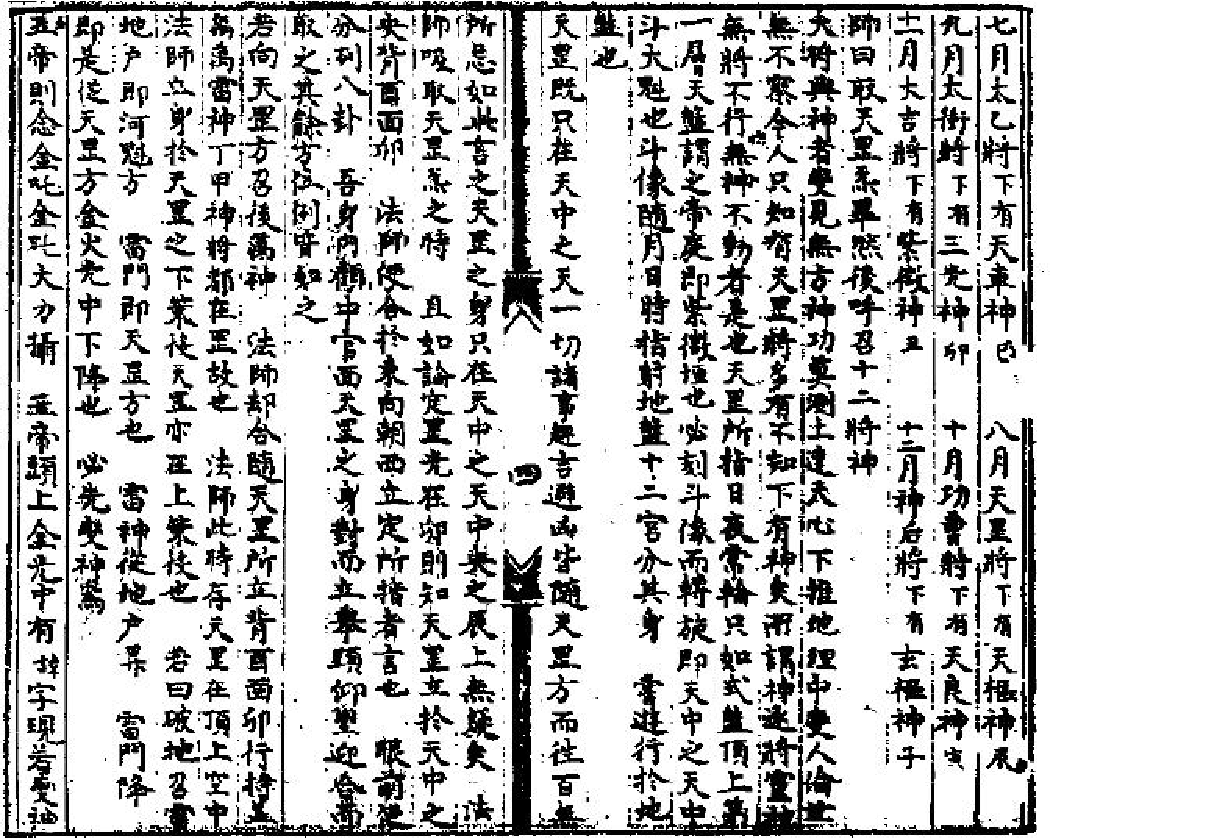 七月太乙將下有天車神巳 八月天罡將下有天樞神辰
九月太衝將下有三光神卯 十月功曹將下有天良神寅
十一月大吉將下有紫微神丑 十二月神后將下有玄樞神子
師曰取天罡炁畢然後呼召十二將神
夫將與神者變見無方神功莫測上達天心下推地理中變人倫世
無不察今人只知有天罡將多有不知下有神矣所謂神逐將靈神
無將不行無神不動者是也天罡所指日夜常輪只如式盤頂上第
一層天盤謂之帝庭即紫微垣也必刻斗像而轉旋即天中之天中
斗大魁也斗像隨月日時指對地盤十二宮分其身 常遊行於地
盤也
天罡既只在天中之天一切諸事趨吉避凶皆隨天罡方而往百無
所忌如此言之天罡之身只在天中之天中央之辰上無疑矣 法
師吸取天罡炁之時 且如論定罡光在卯則知天罡立於天中之
央背酉面卯 法師便合於東向朝西立定所指者言也 眼前便
分列八卦 吾身內觀中宮面天罡之身對而立舉頭仰望迎合而
取之其餘方位例皆如之
若向天罡方召後萬神 法師却合隨天罡所立背酉面卯行持蓋
萬 雷神丁甲神將都在罡故也 法師此時存天罡在頂上空中
法師立身於天罡之下業後天罡亦在上業後也 若曰破地召雷
地户即河魁方 雷門即天罡方也 雷神從地户昇 雷門降
即是從天罡方金火光中下降也 必先變神為
五帝則念金吒金吒大力攝 五帝頭上金光中有 字現若變神